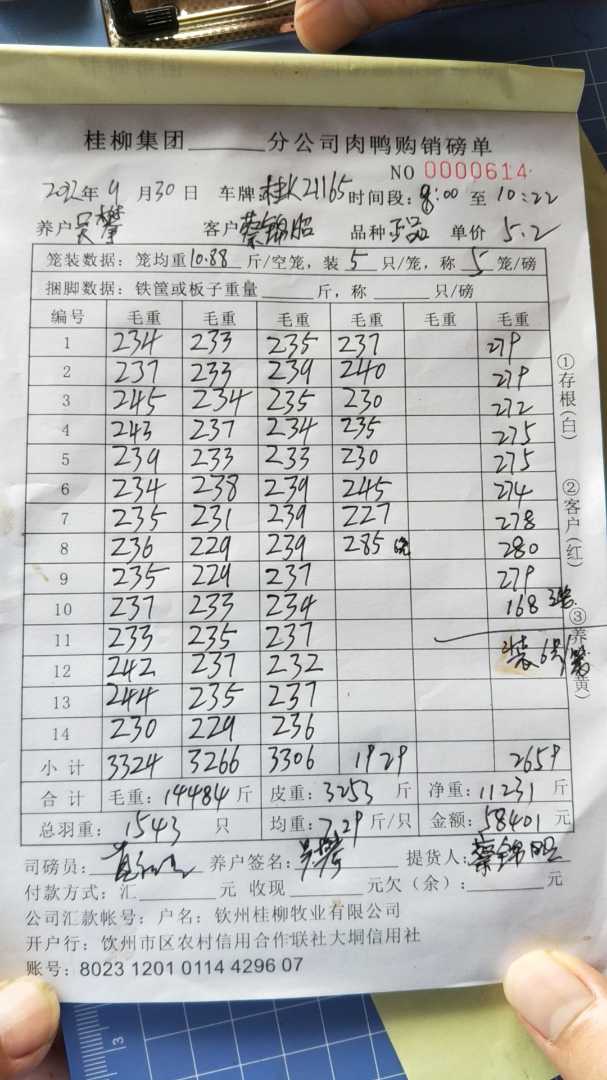 桂柳集团______分公司肉鸭购销磅单
NO 0000614
2022年 9 月 30 日 车牌:桂K21165 时间段: 8:00 至 10:22
养户 吴攀 客户 蔡锦昭 品种 正品 单价 5.2
笼装数据: 笼均重 10.88 斤/空笼, 装 5 只/笼, 称 5 笼/磅
捆脚数据: 铁筐或板子重量______斤, 称______只/磅
编号 毛重 毛重 毛重 毛重 毛重 毛重
1 234 233 235 237 279
2 237 233 239 240 279
3 245 234 235 230 272
4 243 237 234 235 275
5 239 233 233 230 275
6 234 238 239 245 274
7 235 231 239 227 278
8 236 229 239 285 280
9 235 229 237 279
10 237 233 234 168
11 233 235 237
12 242 237 232
13 244 235 237
14 230 229 236
小计 3324 3266 3306 1929 2659
合计 毛重: 14484 斤 皮重: 3253 斤 净重: 11231 斤
总羽重: 1543 只 均重: 7.29 斤/只 金额: 58401 元
司磅员: 养户签名: 吴攀 提货人: 蔡锦昭
付款方式: 汇______元 收现______元欠(余):______元
公司汇款帐号: 户名: 钦州桂柳牧业有限公司
开户行: 钦州市区农村信用合作联社大垌信用社
账号: 8023 1201 0114 4296 07
①存根(白)
②客户(红)
③养 黄)